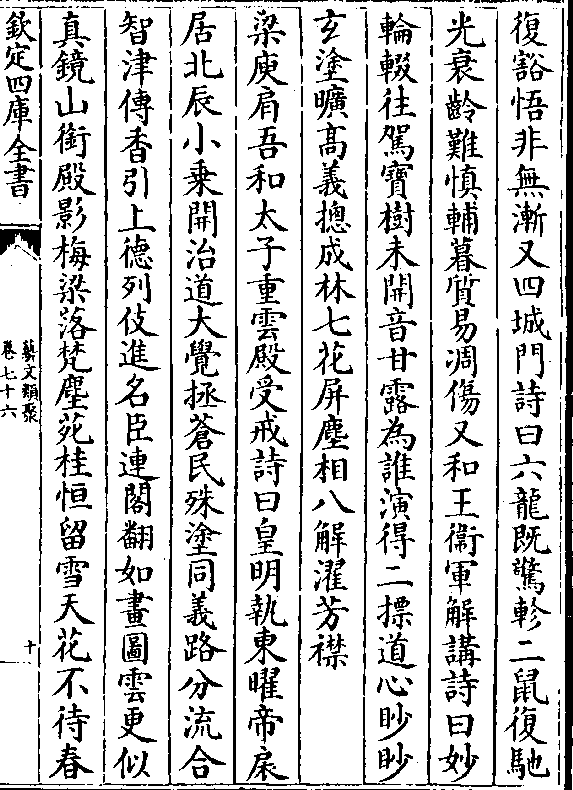 復豁悟非無漸又四城門詩曰六龍既驚軫二鼠復馳
光衰齡難慎輔暮質易凋傷又和王衞軍解講詩曰妙
輪輟往駕寶樹未開音甘露為誰演得二摽道心眇眇
玄塗曠高義摠成林七花屏塵相八解濯芳襟
梁庾肩吾和太子重雲殿受戒詩曰皇明執東曜帝扆
居北辰小乗開治道大覺拯蒼民殊塗同義路分流合
智津傳香引上德列伎進名臣連閣翻如畫圖雲更似
真鏡山銜殿影梅梁落梵塵苑桂恒留雪天花不待春
欽定四庫全書
藝文類聚
卷七十六
十